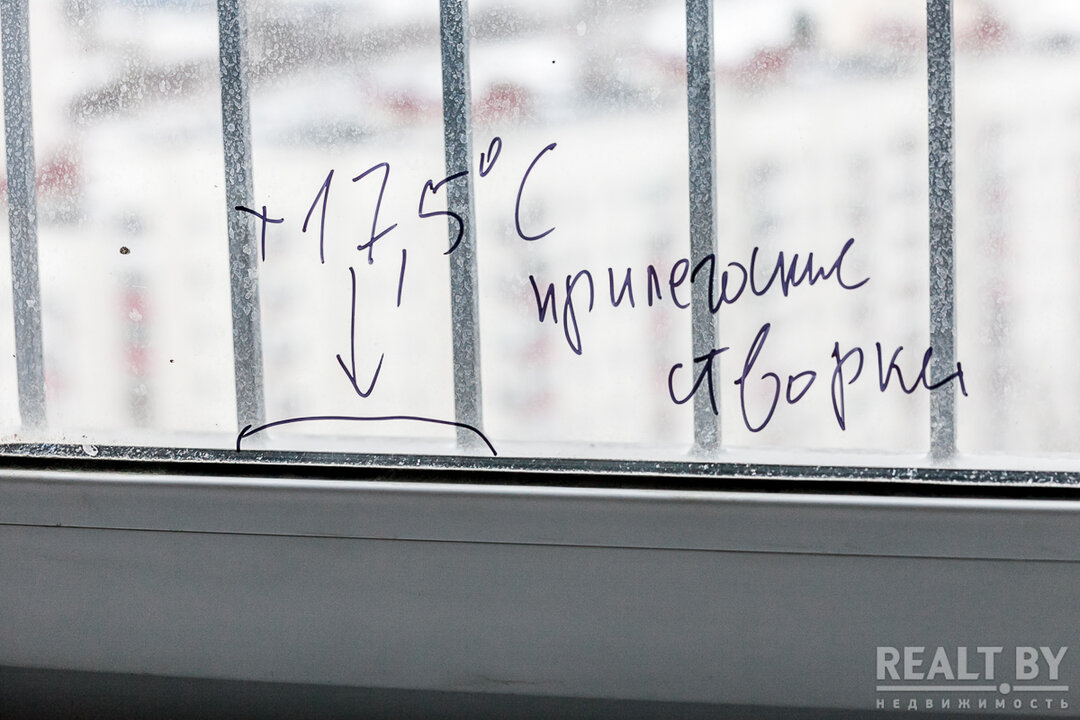 +17,5°C
прилегание
створки
REALT.BY
НЕДВИЖИМОСТЬ